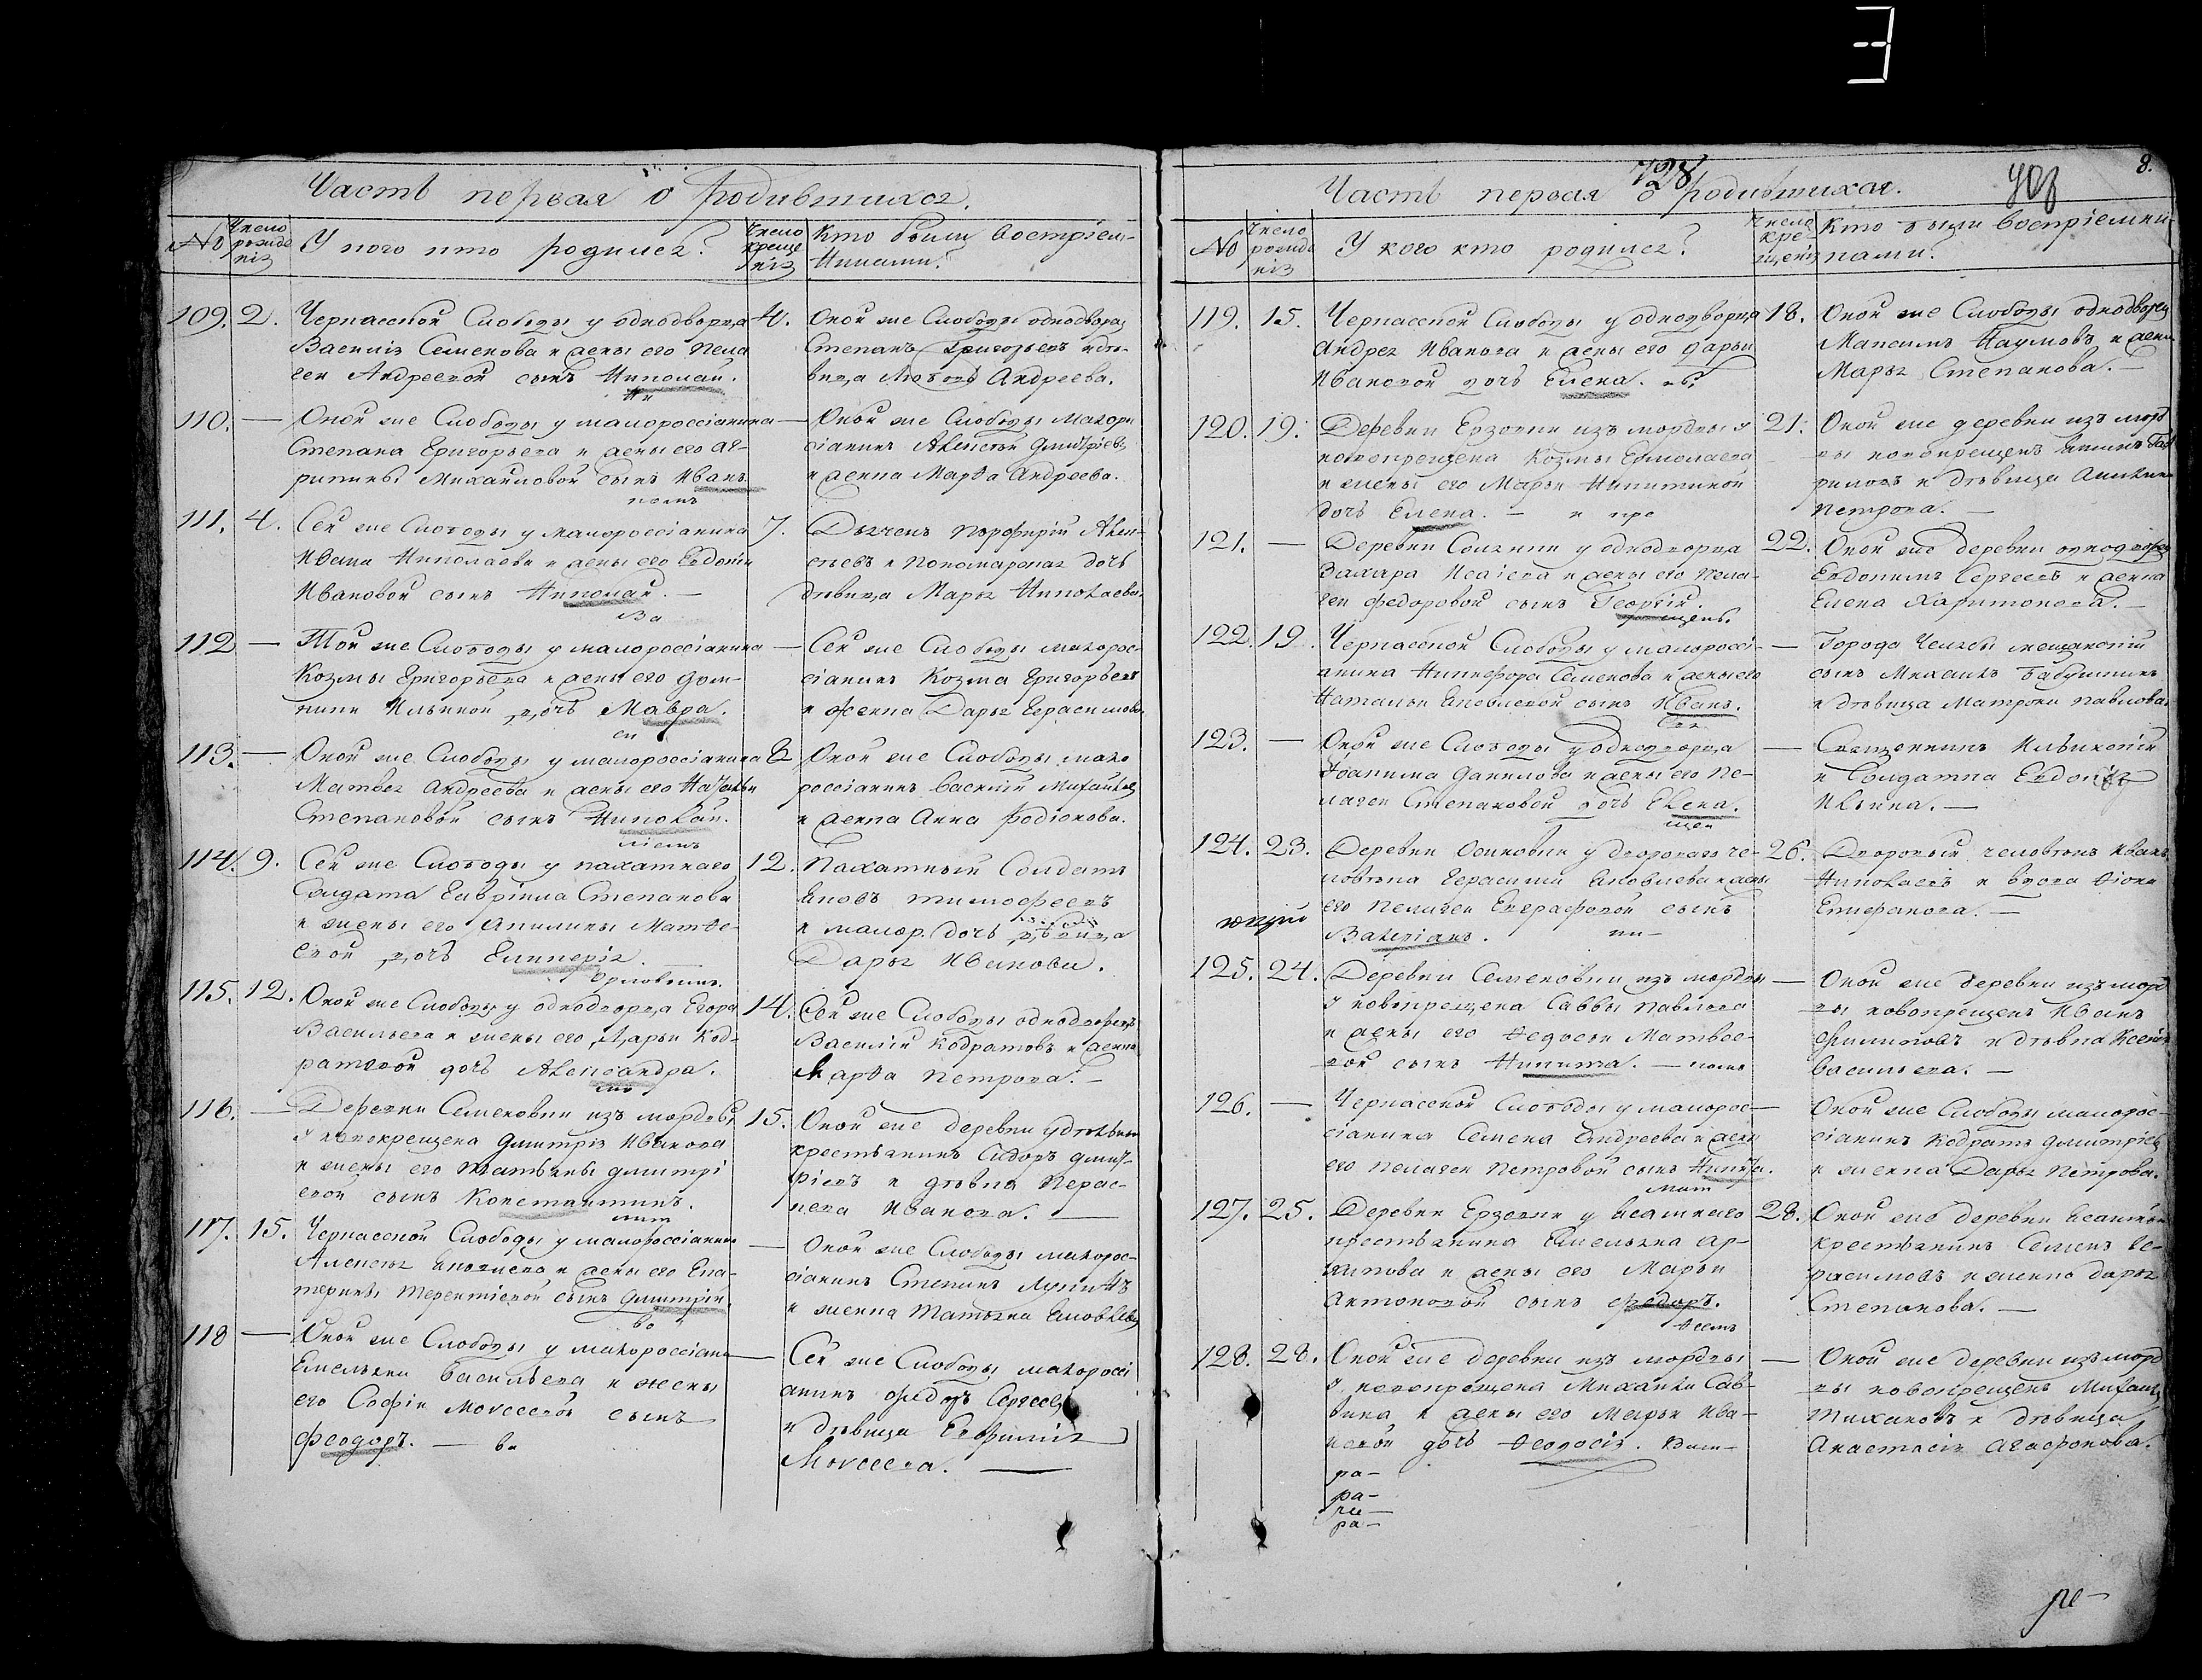 Часть первая о родившихся.
№
Число рожденія
У кого кто родился?
Число крещенія
Кто были воспріем-
никами?
109. 2. Черкасской Слободы у однодворца
Василія Семенова и жены его Пела
геи Андреевой сынъ Николай.
4. Оной же Слободы однодворец
Степанъ Григорьевъ и дѣ-
вица Андреева.
110. — Оной же Слободы у малороссіянина
Степана Григорьева и жены его Аг-
рипины Михайловой сынъ Иванъ.
— Оной же Слободы малорос
сіянинъ Алексѣй Дмитріевъ
и женка Марѳа Андреева.
111. 4. Сей же Слободы у малороссіянина
Ивана Николаева и жены его Евдокіи
Ивановой сынъ Николай. —
7. Дьячекъ Порфирій Алек-
сѣевъ и Пономарская дочь
дѣвица Марья Николаева.
112 — Той же Слободы у малороссіянина
Козмы Григорьева и жены его Дом-
ники Ильиной дочь Мавра.
— Сей же Слободы малорос-
сіянинъ Козма Григорьевъ
и женка Дарья Герасимова.
113. — Оной же Слободы у малороссіянина
Матвея Андреева и жены его Натальи
Степановой сынъ Николай.
8 Оной же Слободы мало
россіянинъ Василій Михайлов
и женка Анна Родіонова.
114. 9. Сей же Слободы у пахатнаго
Солдата Гавріила Степанова
и жены его Акилины Матѳе-
евой дочь Гликерія.
12. Пахатный Солдатъ
Яковъ Тимофеевъ
и малор. дочь дѣвица
Дарья Иванова.
115. 12. Оной же Слободы у однодворца Егора
Васильева и жены его Дарьи Код-
ратовой дочь Александра.
14. Сей же Слободы однодворецъ
Василій Кодратовъ и женка
Марѳа Петрова. —
116. — Деревни Семеновки изъ мордвы
у новокрещена Дмитрія Иванова
и жены его Татьяны Дмитрі
евой сынъ Константинъ.
15. Оной же деревни удѣльный
крестьянинъ Сидоръ Дмит-
ріевъ и дѣвка Парас-
кева Иванова. —
117. 15. Черкасской Слободы у малороссіянина
Алексея Яковлева и жены его Ека-
терины Терентіевой сынъ Дмитрій.
— Оной же Слободы малорос-
сіянинъ Степанъ
и женка Татьяна Яковлева
118 — Оной же Слободы у малороссіяни
Емельяна Васильева и жены
его Софіи Моисеевой сынъ
Феодоръ. —
— Сей же Слободы малороссі
янинъ Федоръ Сергеевъ
и дѣвица Евфимія
Моисеева. —
728
8.
Часть первая о родившихся.
№
Число рожденія
У кого кто родился?
Число крещенія
Кто были воспріемни-
ками?
119. 15. Черкасской Слободы у однодворца
Андрея Иванова и жены его Дарьи
Ивановой дочь Елена.
18. Оной же Слободы однодворец
Максимъ Наумовъ и женка
Марья Степанова. —
120. 19. Деревни Ерзовки изъ мордвы у
новокрещена Козмы Ермолаева
и жены его Марьи Никитиной
дочь Елена. —
21. Оной же деревни изъ морд
вы новокрещенъ Гав
риловъ и дѣвица
Петрова. —
121. — Деревни у однодворца
Захара Исаіева и жены его Пела-
геи Федоровой сынъ Георгій.
22. Оной же деревни однодворец
Евдокимъ Сергеевъ и женка
Елена Харитонова. —
122. 19. Черкасской Слободы у малороссі-
янина Никифора Семенова и жены его
Натальи Яковлевой сынъ Иванъ.
— Города мещанскій
сынъ Михаилъ Бабушкинъ
и дѣвица Матрона Павлова
123. — Оной же Слободы у однодворца
Іоанима Данилова и жены его Пе-
лагеи Степановой дочь Елена.
— Священникъ Ильинскій
и Солдатка Евдокія
Ильина. —
124. 23. Деревни Осиновки у двороваго че-
ловѣка Герасима Яковлева и жены
его Пелагеи Евграфовой сынъ
Валеріанъ.
26. Дворовый человѣкъ Иванъ
Николаевъ и вдова
Епифанова. —
125. 24. Деревни Семеновки изъ мордвы
у новокрещена Саввы Павлова
и жены его Ѳедосьи Матвее-
вой сынъ Никита. —
— Оной же деревни изъ морд
вы новокрещенъ Иванъ
Филиповъ и дѣвка Ксенія
Васильева. —
126. — Черкасской Слободы у малорос-
сіянина Семена Андреева и жены
его Пелагеи Петровой сынъ Никита.
— Оной же Слободы малорос-
сіянинъ Кодратъ Дмитріевъ
и женка Дарья Петрова.
127. 25. Деревни Ерзовки у ясашнаго
крестьянина Емельяна Ар-
хипова и жены его Марьи
Антоновой сынъ Федоръ.
28. Оной же деревни ясашной
крестьянинъ Семенъ Ге-
расимовъ и женка Дарья
Степанова. —
128. 28. Оной же деревни изъ мордвы
у новокрещена Михаила Сав-
вина и жены его Марьи Ива-
новой дочь Ѳеодосія.
— Оной же деревни изъ морд
вы новокрещенъ Михаилъ
Тихановъ и дѣвица
Анастасія Агафонова.
ра-
ра-
ра-